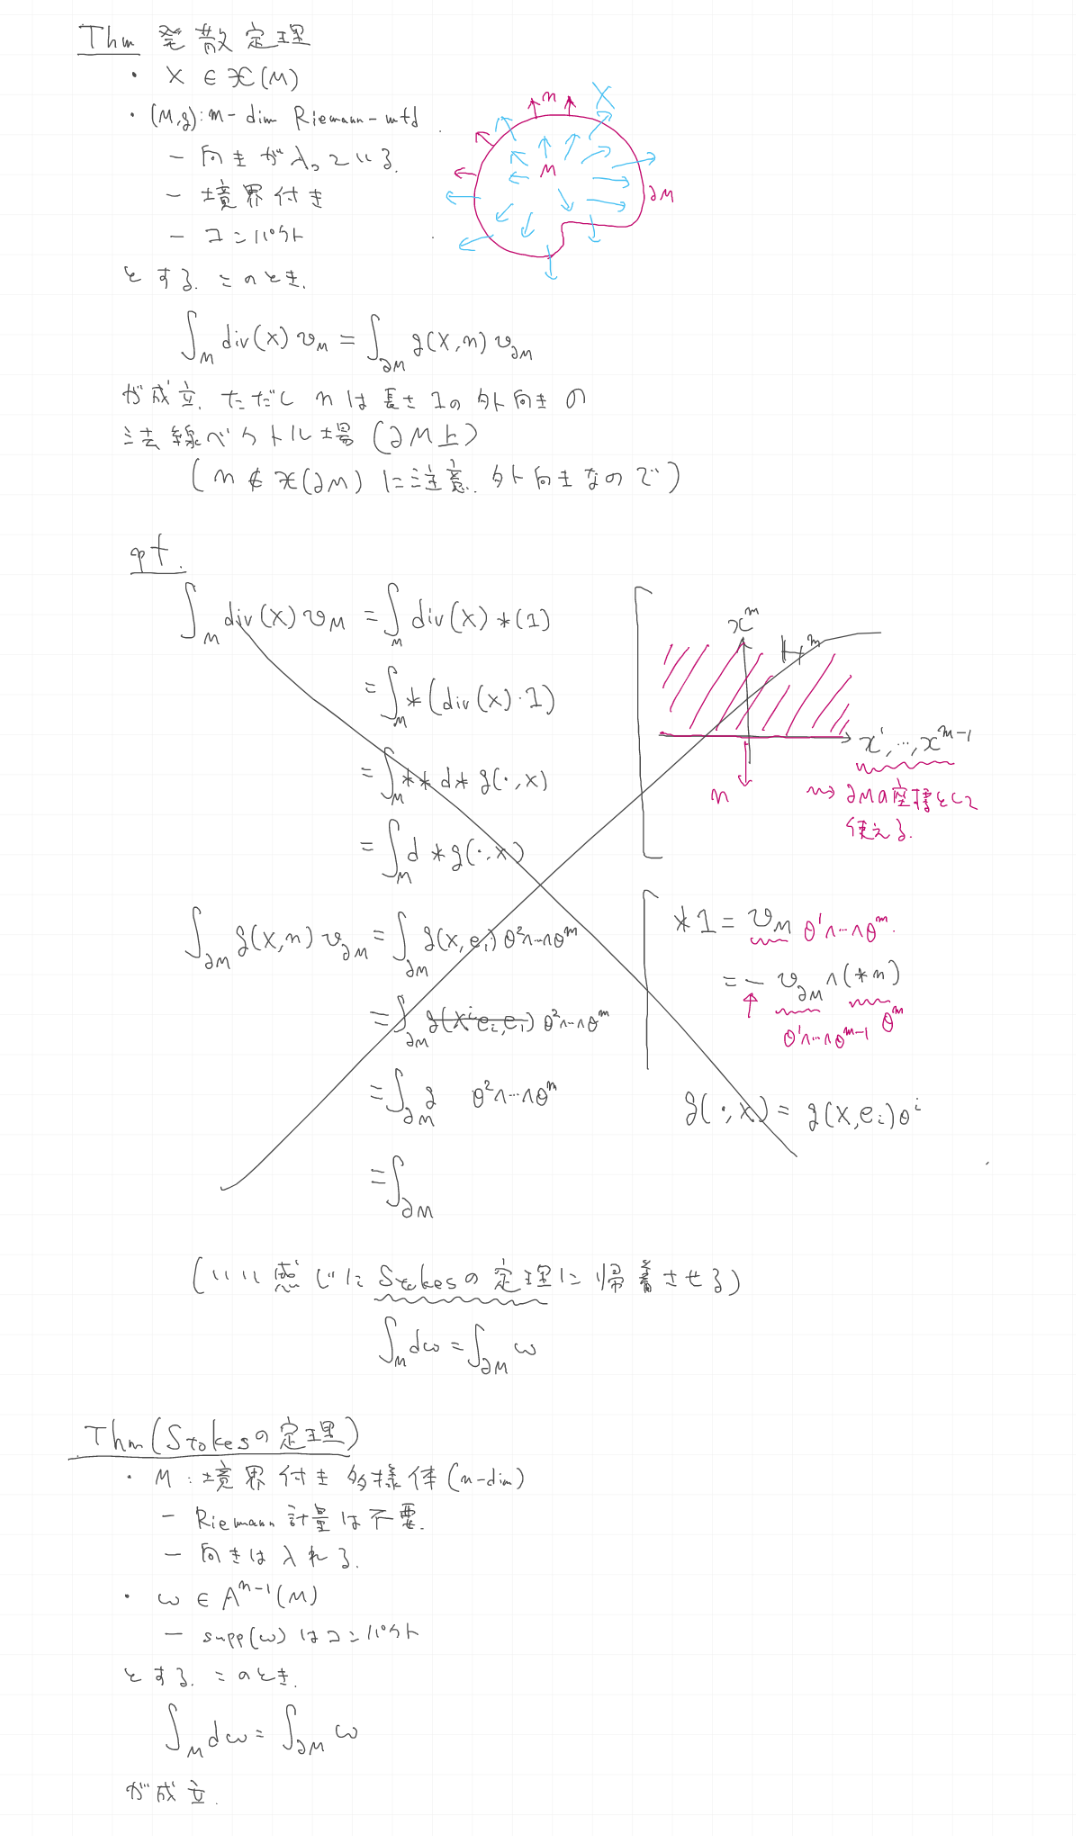 Thm 発散定理
・ X ∈ 𝔛(M)
・ (M,g): m-dim Riemann-mfd
- 向きが入っている.
- 境界付き
- コンパクト
n
X
M
∂M
とする. このとき.
∫_M div(X) v_M = ∫_∂M g(X,n) v_∂M
が成立. ただし n は 長さ 1の 外向きの
法線ベクトル場 (∂M上)
(n ∉ 𝔛(∂M) に注意. 外向きなので)
pf.
∫_M div(X) v_M = ∫_M div(X) *(1)
= ∫_M *(div(X)・1)
= ∫_M ** d * g(・,X)
= ∫_M d * g(・,X)
∫_∂M g(X,n) v_∂M = ∫_∂M g(X,e_1) θ^2∧--∧θ^m
= ∫_∂M g(X^i e_i, e_1) θ^2∧--∧θ^m
= ∫_∂M g θ^2∧--∧θ^m
= ∫_∂M
x^m
H^m
x^1, …, x^{m-1}
n
⇝ ∂Mの座標として
使える.
*1 = v_M θ^1∧--∧θ^m.
= - v_∂M ∧ (*n)
θ^1∧--∧θ^{m-1} θ^m
g(・,X) = g(X,e_i)θ^i
(いい感じに Stokesの定理に帰着させる)
∫_M dω = ∫_∂M ω
Thm (Stokesの定理)
・ M : 境界付き多様体 (n-dim)
- Riemann計量は不要.
- 向きは入れる.
・ ω ∈ A^{n-1}(M)
- supp(ω) はコンパクト
とする. このとき.
∫_M dω = ∫_∂M ω
が成立.